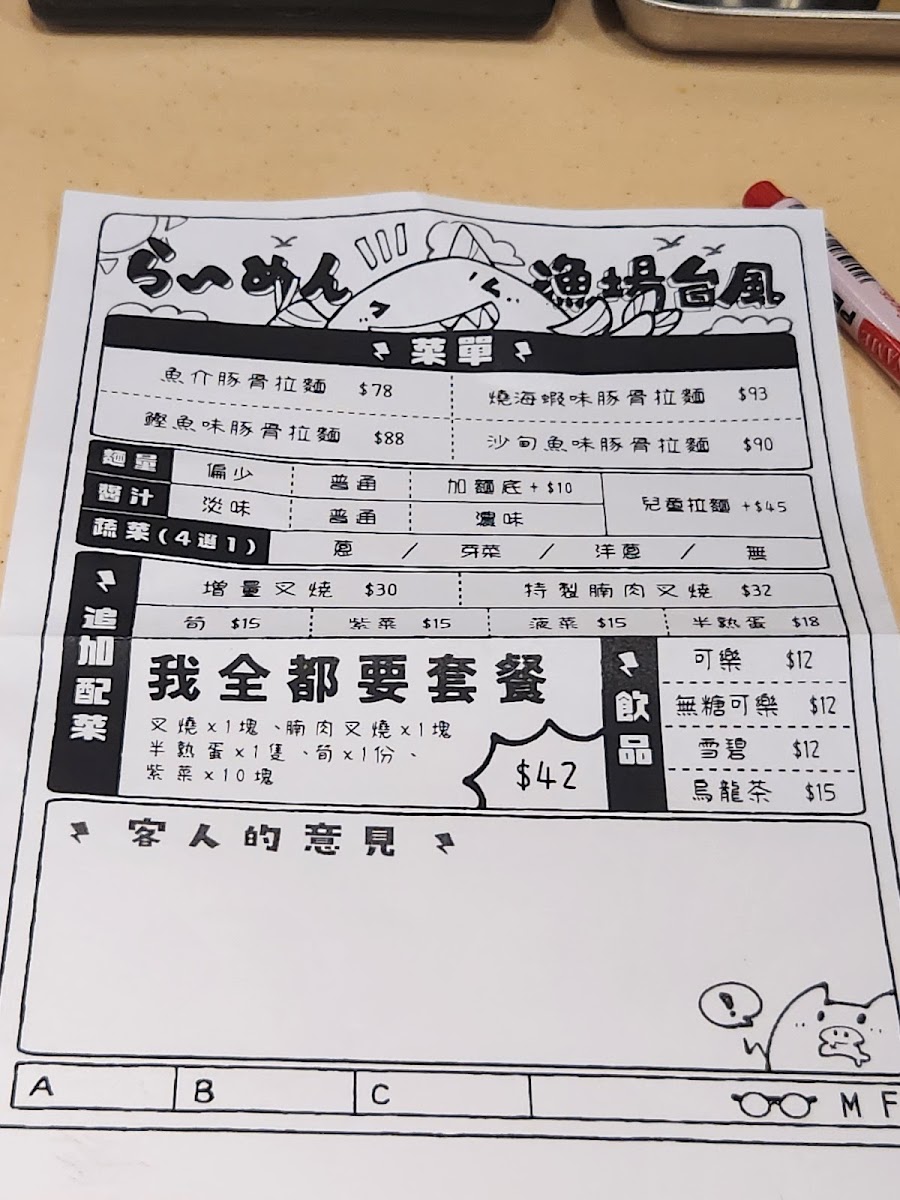 らーめん 漁場台風
菜單
魚介豚骨拉麵 $78 燒海蝦味豚骨拉麵 $93
鰹魚味豚骨拉麵 $88 沙甸魚味豚骨拉麵 $90
麵量 偏少 普通 加麵底+$10 兒童拉麵 +$45
醬汁 淡味 普通 濃味
蔬菜(4選1) 蔥 / 芽菜 / 洋蔥 / 無
追加配菜
增量叉燒 $30 特製腩肉叉燒 $32
筍 $15 紫菜 $15 菠菜 $15 半熟蛋 $18
我全都要套餐
叉燒x1塊、腩肉叉燒x1塊
半熟蛋x1隻、筍x1份、
紫菜x10塊
$42
飲品
可樂 $12
無糖可樂 $12
雪碧 $12
烏龍茶 $15
客人的意見
!
A B C M F